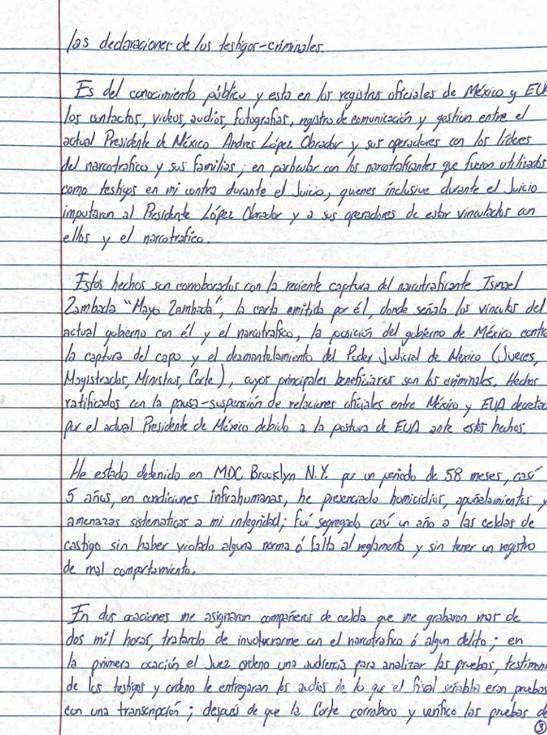 las declaraciones de los testigos-criminales.
Es del conocimiento público y esta en los registros oficiales de México y EU
los contactos, videos, audios, fotografias, registro de comunicación y gestion entre el
actual Presidente de México Andres López Obrador y sus operadores con los lideres
del narcotrafico y sus familias; en particular con los narcotraficantes que fueron utilizados
como testigos en mi contra durante el Juicio, quienes inclusive durante el Juicio
imputaron al Presidente López Obrador y a sus operadores de estar vinculados con
ellos y el narcotrafico.
Estos hechos son corroborados con la reciente captura del narcotraficante Ismael
Zambada "Mayo Zambada", la carta emitida por él, donde señala los vinculos del
actual gobierno con él y el narcotrafico, la posición del gobierno de México contra
la captura del capo y el desmantelamiento del Poder Judicial de México (Jueces,
Magistrados, Ministros, Corte), cuyos principales beneficiarios son los criminales. Hechos
ratificados con la pausa-suspensión de relaciones oficiales entre México y EUA decreta
por el actual Presidente de México debido a la postura de EUA ante estos hechos.
He estado detenido en MDC Brooklyn N.Y. por un periodo de 58 meses, casi
5 años, en condiciones infrahumanas, he presenciado homicidios, apuñalamientos y
amenazas sistematicas a mi integridad; fui segregado casi un año a las celdas de
castigo sin haber violado alguna norma ó falta al reglamento y sin tener un registro
de mal comportamiento.
En dos ocasiones me asignaron compañeros de celda que me grabaron mas de
dos mil horas, tratando de involucrarme con el narcotrafico ó algun delito; en
la primera ocasión el Juez ordeno una audiencia para analizar las pruebas, testimon
de los testigos y ordeno le entregaran los audios de lo que el fiscal señalaba eran pruebas
con una transcripción; después de que la Corte corroboro y verifico las pruebas de
3